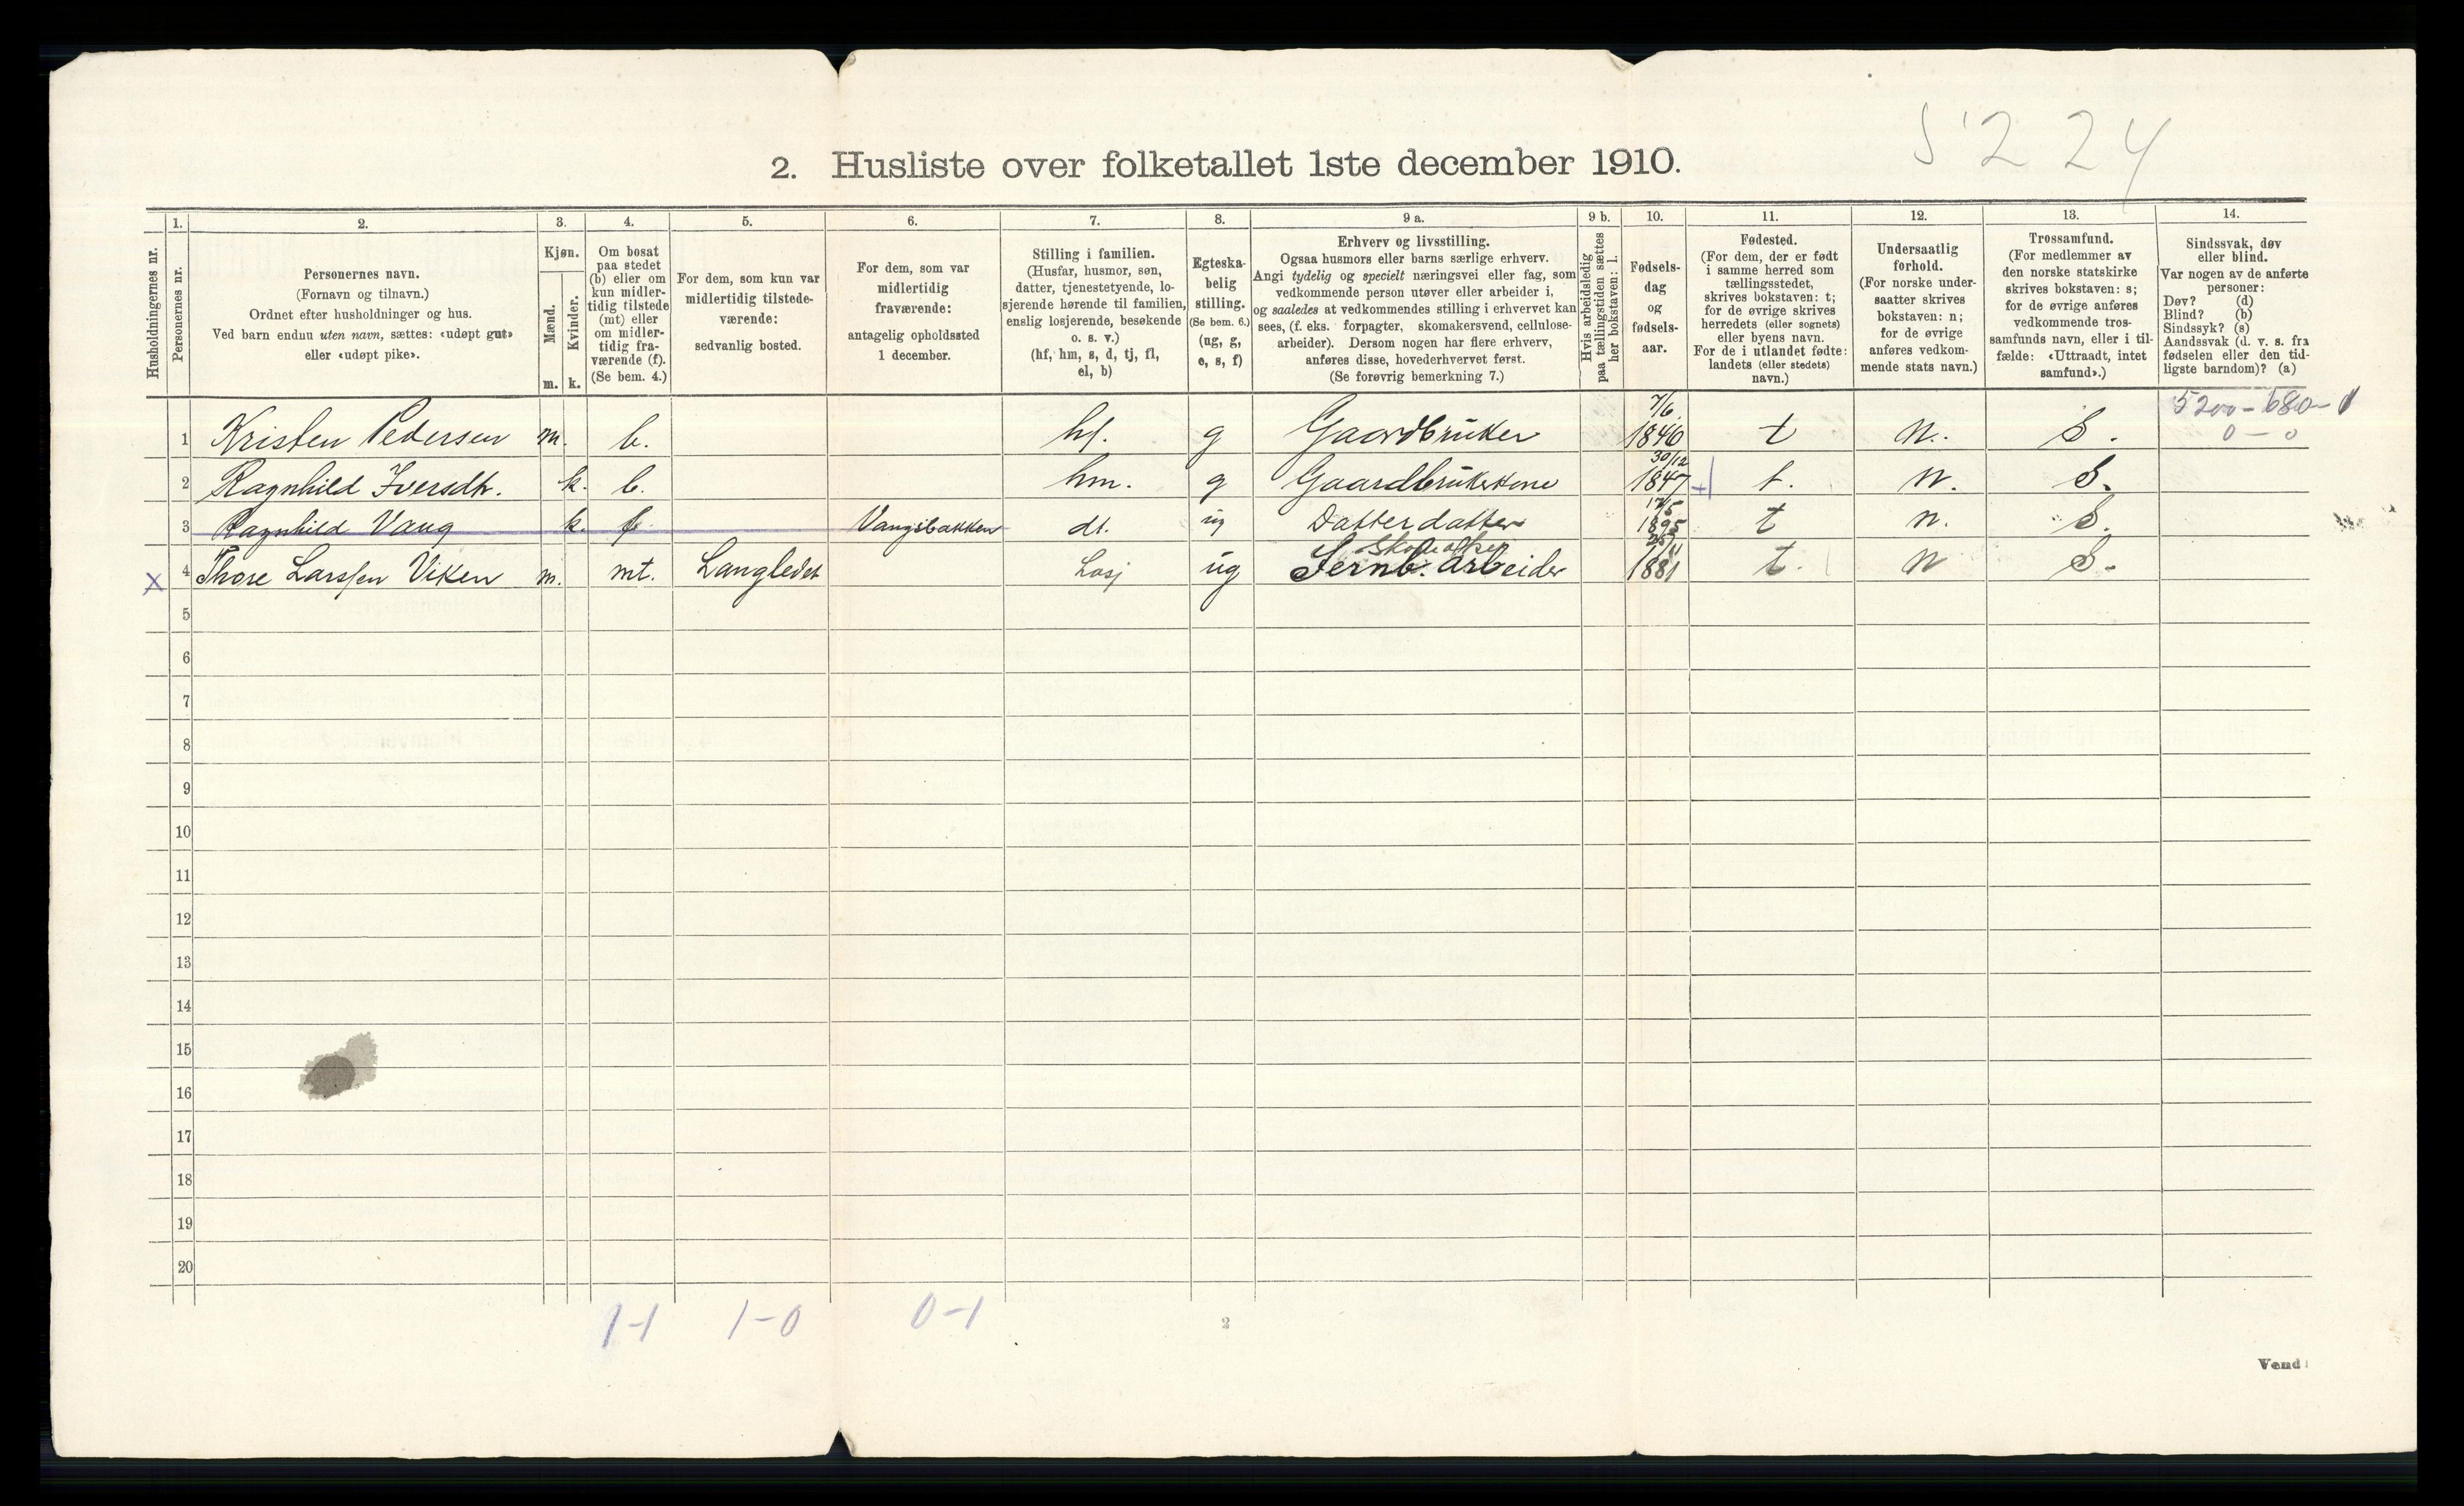 5224
2. Husliste over folketallet 1ste december 1910.
Husholdningernes nr.
1. Personernes nr.
2. Personernes navn.
(Fornavn og tilnavn.)
Ordnet efter husholdninger og hus.
Ved barn endnu uten navn, sættes: «udøpt gut»
eller «udøpt pike».
3. Kjøn.
Mænd. Kvinder.
m. k.
4. Om bosat
paa stedet
(b) eller om
kun midler-
tidig tilstede
(mt) eller
om midler-
tidig fra-
værende (f).
(Se bem. 4.)
5. For dem, som kun var
midlertidig tilstede-
værende:
sedvanlig bosted.
6. For dem, som var
midlertidig
fraværende:
antagelig opholdssted
1 december.
7. Stilling i familien.
(Husfar, husmor, søn,
datter, tjenestetyende, lo-
sjerende hørende til familien,
enslig losjerende, besøkende
o. s. v.)
(hf, hm, s, d, tj, fl,
el, b)
8. Egteska-
belig
stilling.
(Se bem. 6.)
(ug, g,
e, s, f)
9 a. Erhverv og livsstilling.
Ogsaa husmors eller barns særlige erhverv.
Angi tydelig og specielt næringsvei eller fag, som
vedkommende person utøver eller arbeider i,
og saaledes at vedkommendes stilling i erhvervet kan
sees, (f. eks. forpagter, skomakersvend, cellulose-
arbeider). Dersom nogen har flere erhverv,
anføres disse, hovederhvervet først.
(Se forøvrig bemerkning 7.)
9 b. Hvis arbeidsledig
paa tællingstiden sættes
her bokstaven: l.
10. Fødsels-
dag
og
fødsels-
aar.
11. Fødested.
(For dem, der er født
i samme herred som
tællingsstedet,
skrives bokstaven: t;
for de øvrige skrives
herredets (eller sognets)
eller byens navn.
For de i utlandet fødte:
landets (eller stedets)
navn.)
12. Undersaatlig
forhold.
(For norske under-
saatter skrives
bokstaven: n;
for de øvrige
anføres vedkom-
mende stats navn.)
13. Trossamfund.
(For medlemmer av
den norske statskirke
skrives bokstaven: s;
for de øvrige anføres
vedkommende tros-
samfunds navn, eller i til-
fælde: «Uttraadt, intet
samfund».)
14. Sindssvak, døv
eller blind.
Var nogen av de anførte
personer:
Døv? (d)
Blind? (b)
Sindssyk? (s)
Aandssvak (d. v. s. fra
fødselen eller den tid-
ligste barndom)? (a)
5200-680-1
0-0
1 Kristen Pedersen m. b. hf. g Gaardbruker 7/6 1846 t n. S.
2 Ragnhild Iversdtr. k. b. hm. g Gaardbrukerkone 30/12 1847 t. n. S.
3 Ragnhild Vang k. Vangsbakken dt. ug Datterdatter 17/5 1895 t n. S.
4 Thore Larssen Viken m. mt. Langledet Losj ug Jernb. arbeider 1881 t. n S.
X
5
6
7
8
9
10
11
12
13
14
15
16
17
18
19
20
1-1 1-0 0-1
2
Vend